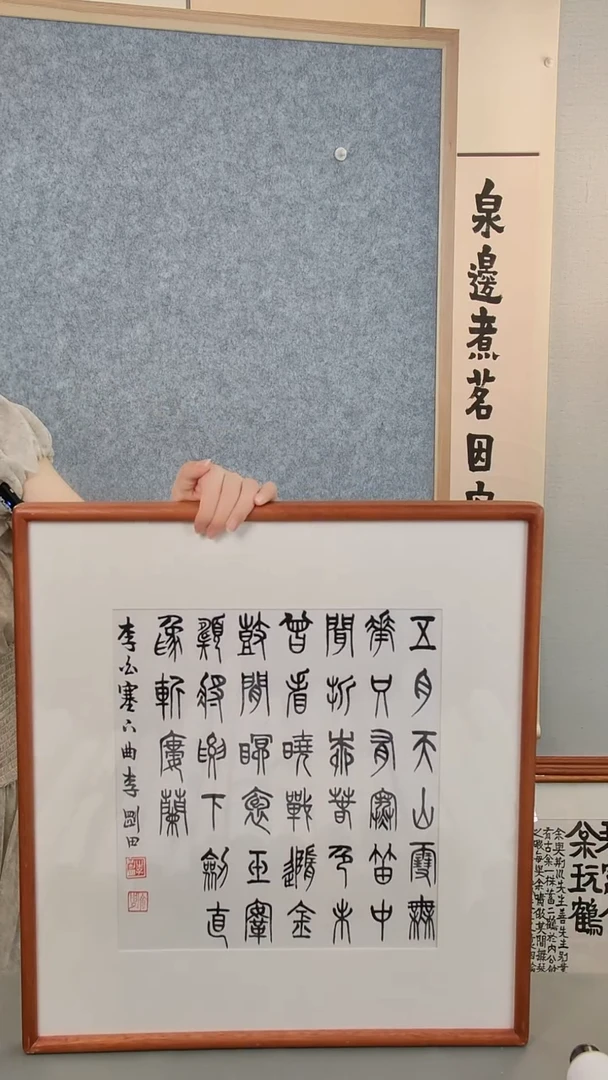 泉邊煮茗因
五月天山雪無
華只有寒笛中
聞折柳春色未
曾看曉戰隨金
鼓眠玉鞌
願將腰下劍直
為斬樓蘭
李白塞下曲李剛田
玩鶴